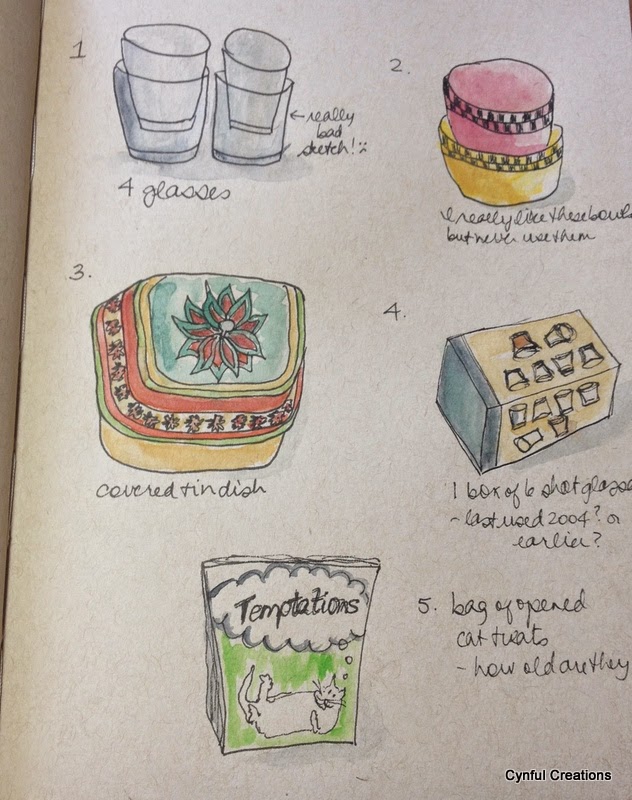 1
←really
bad
sketch!
4 glasses
2.
I really like these bowls
but never use them
3.
covered tin dish
4.
1 box of 6 shot glasses
- last used 2004? or
earlier?
Temptations
5. bag of opened
cat treats
- how old are they
Cynful Creations